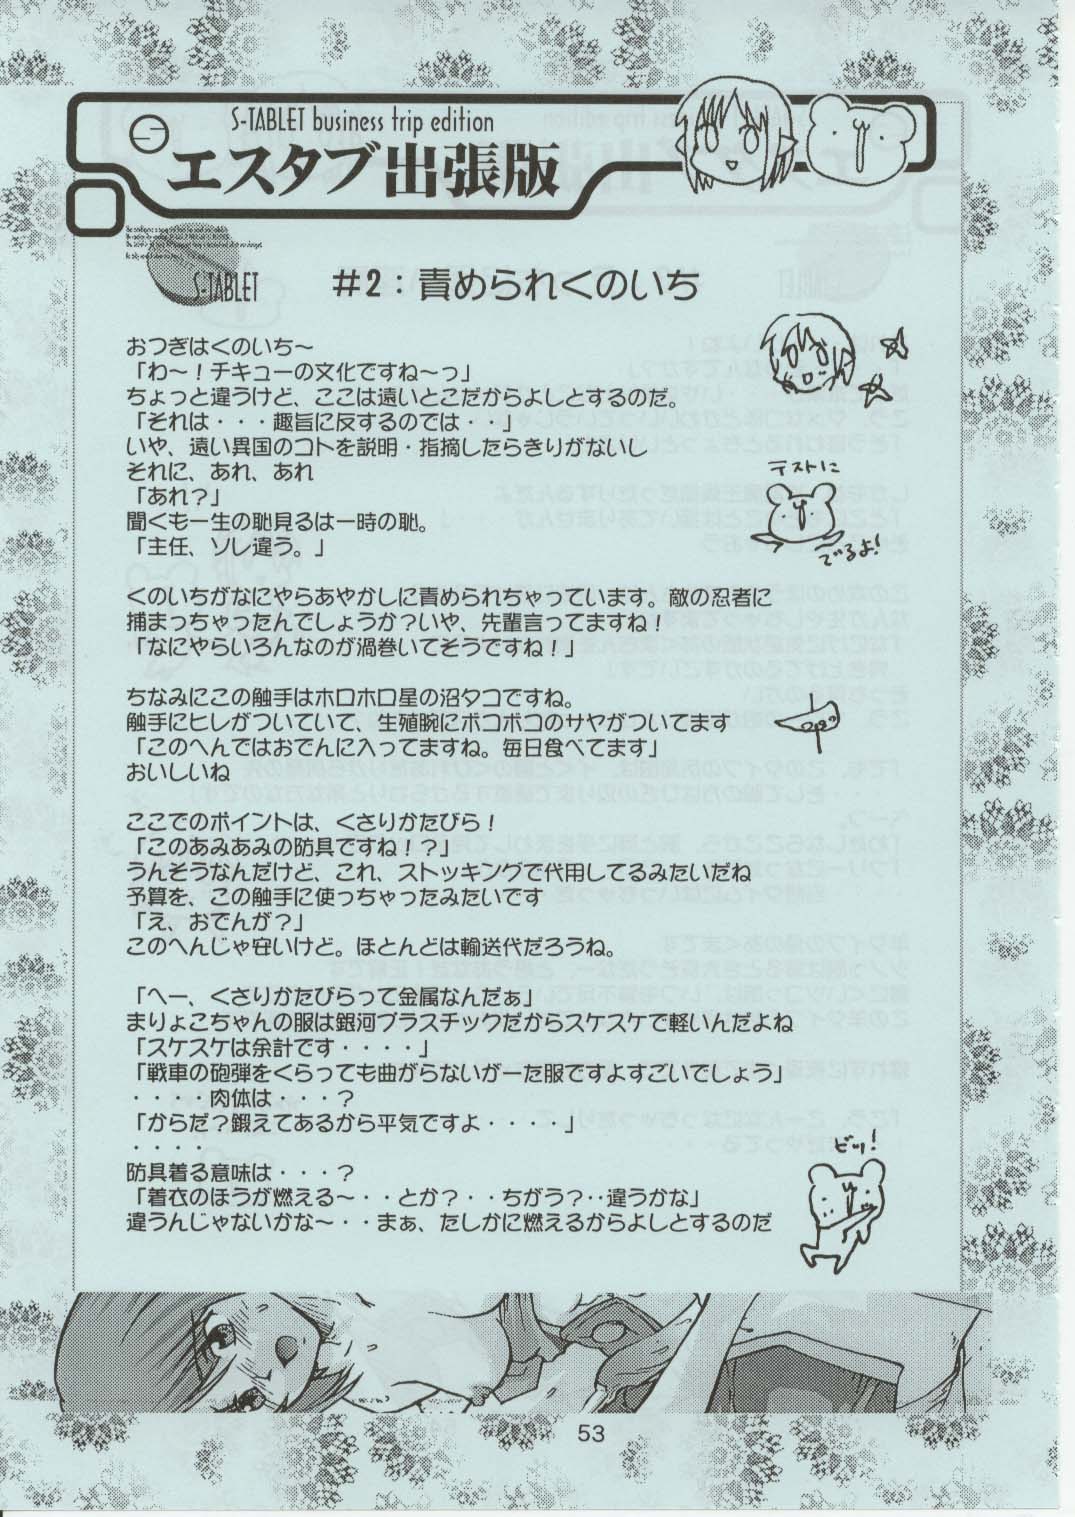 S-TABLET business trip edition
エスタブ出張版
S-TABLET
#2:責められくのいち
おつぎはくのいち〜
「わ〜!チキューの文化ですね〜っ」
ちょっと違うけど、ここは遠いとこだからよしとするのだ。
「それは・・・趣旨に反するのでは・・」
いや、遠い異国のコトを説明・指摘したらきりがないし
それに、あれ、あれ
「あれ?」
聞くも一生の恥見るは一時の恥。
「主任、ソレ違う。」
テストに
でるよ!
くのいちがなにやらあやかしに責められちゃっています。敵の忍者に
捕まっちゃったんでしょうか?いや、先輩言ってますね!
「なにやらいろんなのが渦巻いてそうですね!」
ちなみにこの触手はホロホロ星の沼タコですね。
触手にヒレがついていて、生殖腕にボコボコのサヤがついてます
「このへんではおでんに入ってますね。毎日食べてます」
おいしいね
ここでのポイントは、くさりかたびら!
「このあみあみの防具ですね!?」
うんそうなんだけど、これ、ストッキングで代用してるみたいだね
予算を、この触手に使っちゃったみたいです
「え、おでんが?」
このへんじゃ安いけど。ほとんどは輸送代だろうね。
「へー、くさりかたびらって金属なんだぁ」
まりょこちゃんの服は銀河プラスチックだからスケスケで軽いんだよね
「スケスケは余計です・・・・」
「戦車の砲弾をくらっても曲がらないがーた服ですよすごいでしょう」
・・・・肉体は・・・・?
「からだ?鍛えてあるから平気ですよ・・・・」
・・・・
防具着る意味は・・・?
「着衣のほうが燃える〜・・とか?・・ちがう?‥違うかな」
違うんじゃないかな〜・・まぁ、たしかに燃えるからよしとするのだ
ビッ!
53